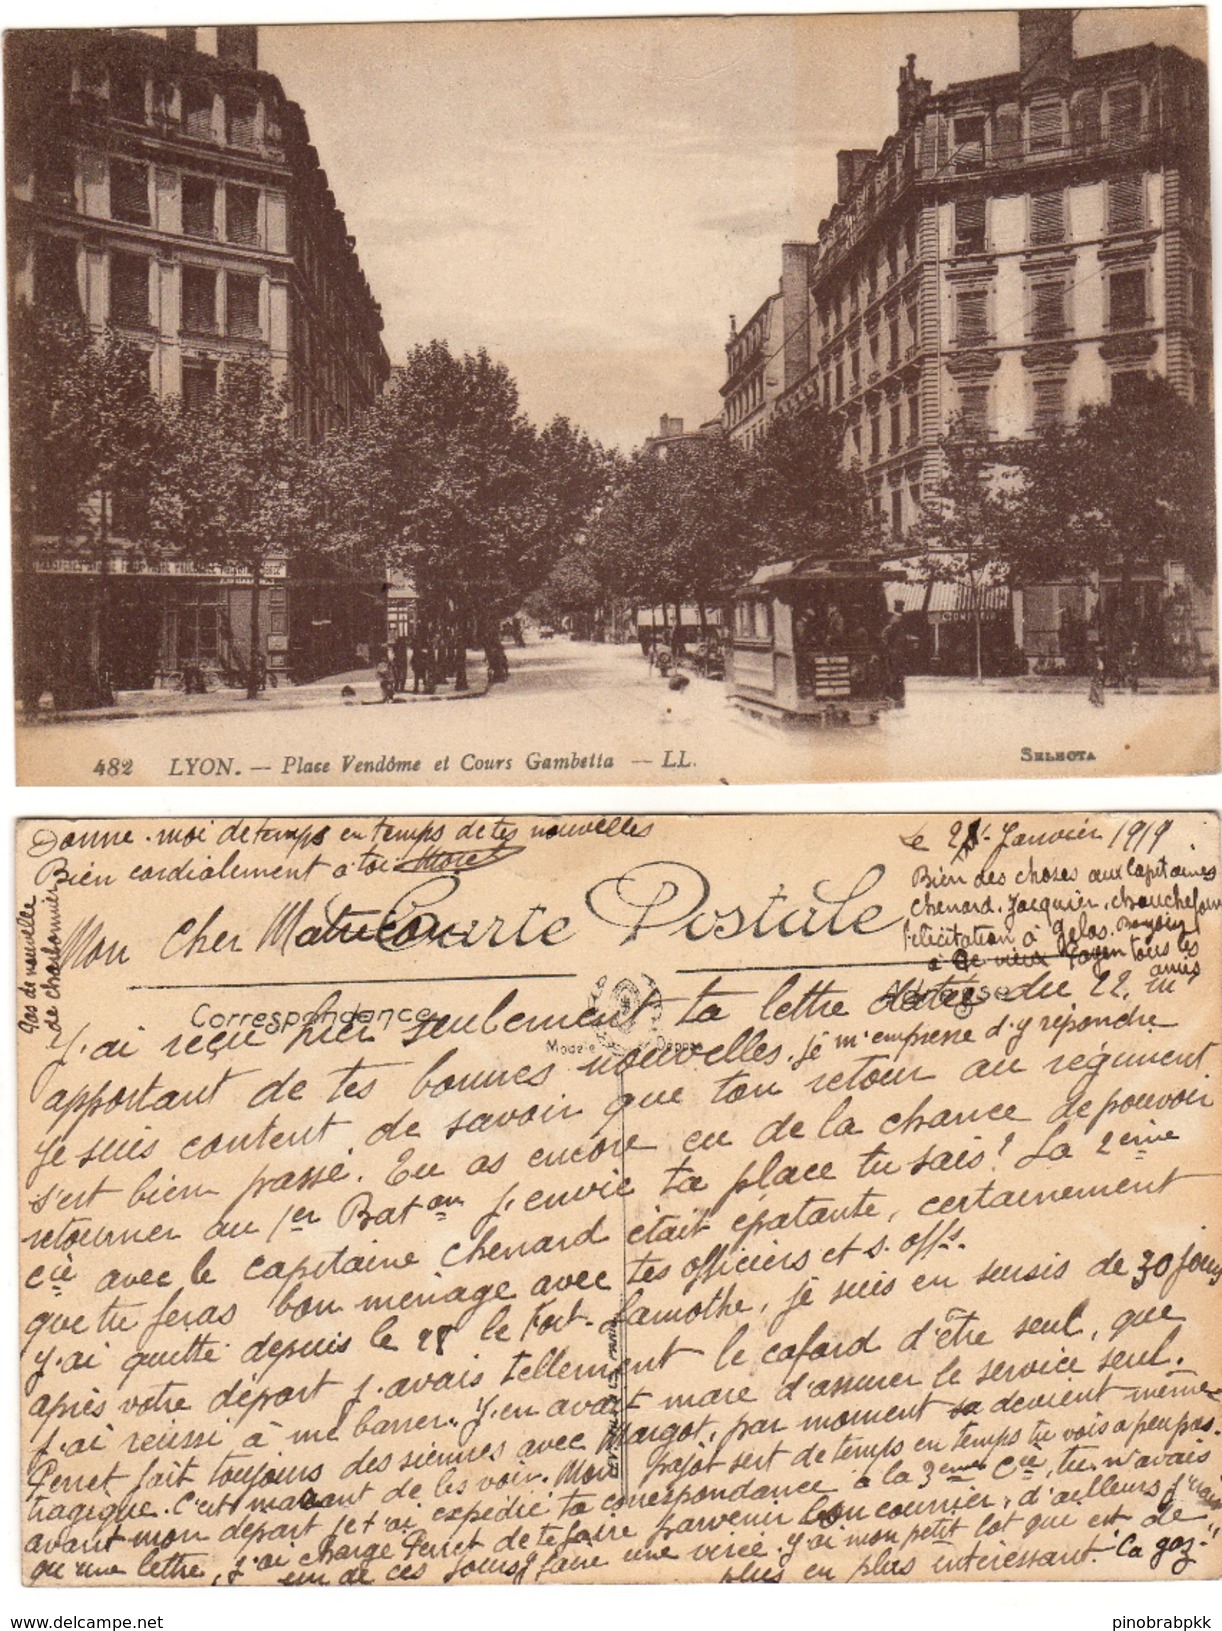 482 LYON. — Place Vendôme et Cours Gambetta — LL.
SELECTA
COMPTOIR
Donne-moi de temps en temps de tes nouvelles
Bien cordialement à toi
Le 28 Janvier 1919
Bien des choses aux capitaines
Chenard, Jacquier,
félicitation à Gelas.
à ce vieux Payen tous les
amis
Pas de nouvelle
de charbonnier
Carte Postale
Mon Cher
Correspondance
Adresse
Modèle Déposé
J'ai reçu hier seulement ta lettre datée du 22, m'
apportant de tes bonnes nouvelles. je m'empresse d'y répondre
Je suis content de savoir que ton retour au régiment
s'est bien passé. Tu as encore eu de la chance de pouvoir
retourner au 1er Bataon j'envie ta place tu sais! La 2ème
Cie avec le capitaine Chenard était épatante, certainement
que tu feras bon ménage avec tes officiers et s. offs.
J'ai quitté depuis le 28 le Fort-Lamothe, je suis en sursis de 30 jours
après votre départ j'avais tellement le cafard d'être seul, que
j'ai réussi à me barrer. J'en avait mare d'assurer le service seul.
Perret fait toujours des siennes avec Margot, par moment sa devient même
tragique. C'est marant de les voir. Mon Pajot sert de temps en temps tu vois a peu pas.
avant mon départ je t'ai expédié ta correspondance à la 3ème Cie, tu n'avais
qu'une lettre, j'ai chargé Perret de te faire parvenir ton courrier, d'ailleurs j'irai
un de ces jours faire une virée. J'ai mon petit lot que est de
plus en plus intéressant. "Ca gaz."
www.delcampe.net
pinobrabpkk